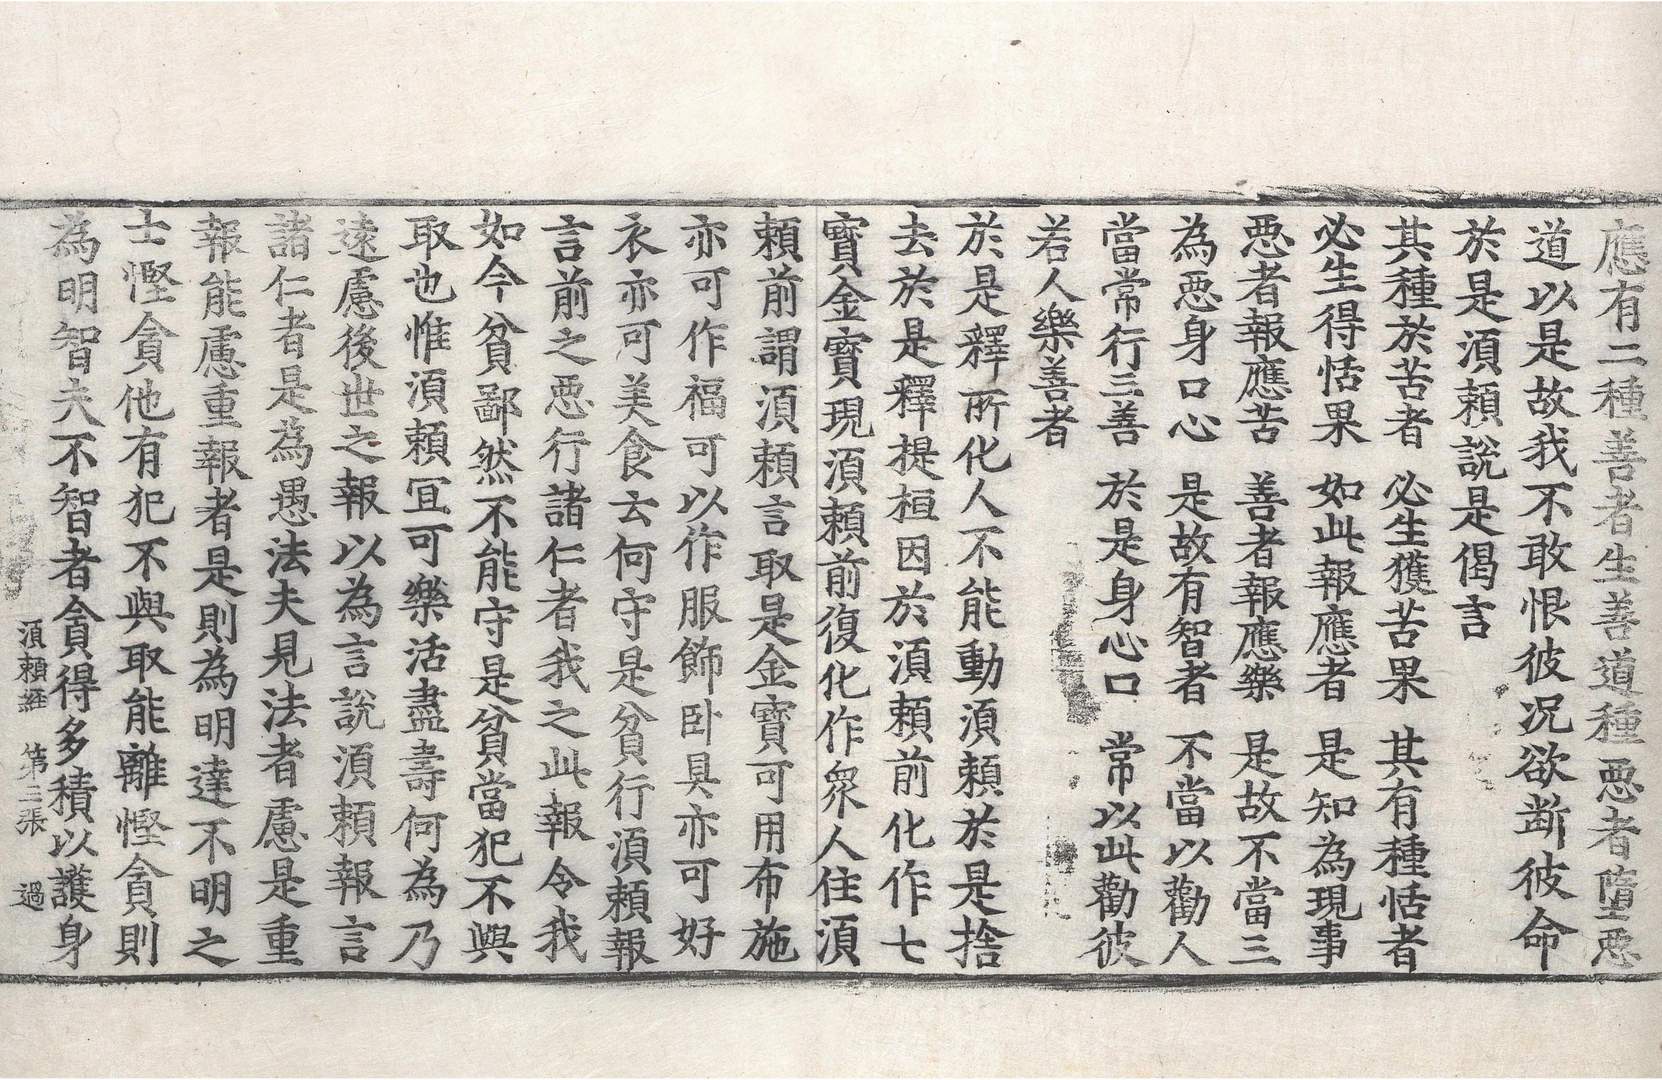 應有二種善者生善道種惡者墮惡
道以是故我不敢恨彼況欲断彼命
於是湏頼說是偈言
其種於苦者　必生獲苦果　其有種恬者
必生得恬果　如此報應者　是知為現事
惡者報應苦　善者報應樂　是故不當三
為惡身口心　是故有智者　不當以勸人
當常行三善　於是身心口　常以此勸彼
若人樂善者
於是釋所化人不能動湏頼於是捨
去於是釋提桓因於湏頼前化作七
寶金寶現湏頼前復化作眾人住湏
頼前謂湏頼言取是金寶可用布施
亦可作福可以作服飾卧具亦可好
衣亦可美食云何守是貧行湏頼報
言前之惡行諸仁者我之此報令我
如今貧鄙然不能守是貧當犯不與
取也惟湏頼冝可樂活盡壽何為乃
遠慮後世之報以為言說湏頼報言
諸仁者是為愚法夫見法者慮是重
報能慮重報者是則為明達不明之
士慳貪他有犯不與取能離慳貪則
為明智夫不智者貪得多積以護身
湏頼經　第三張　過